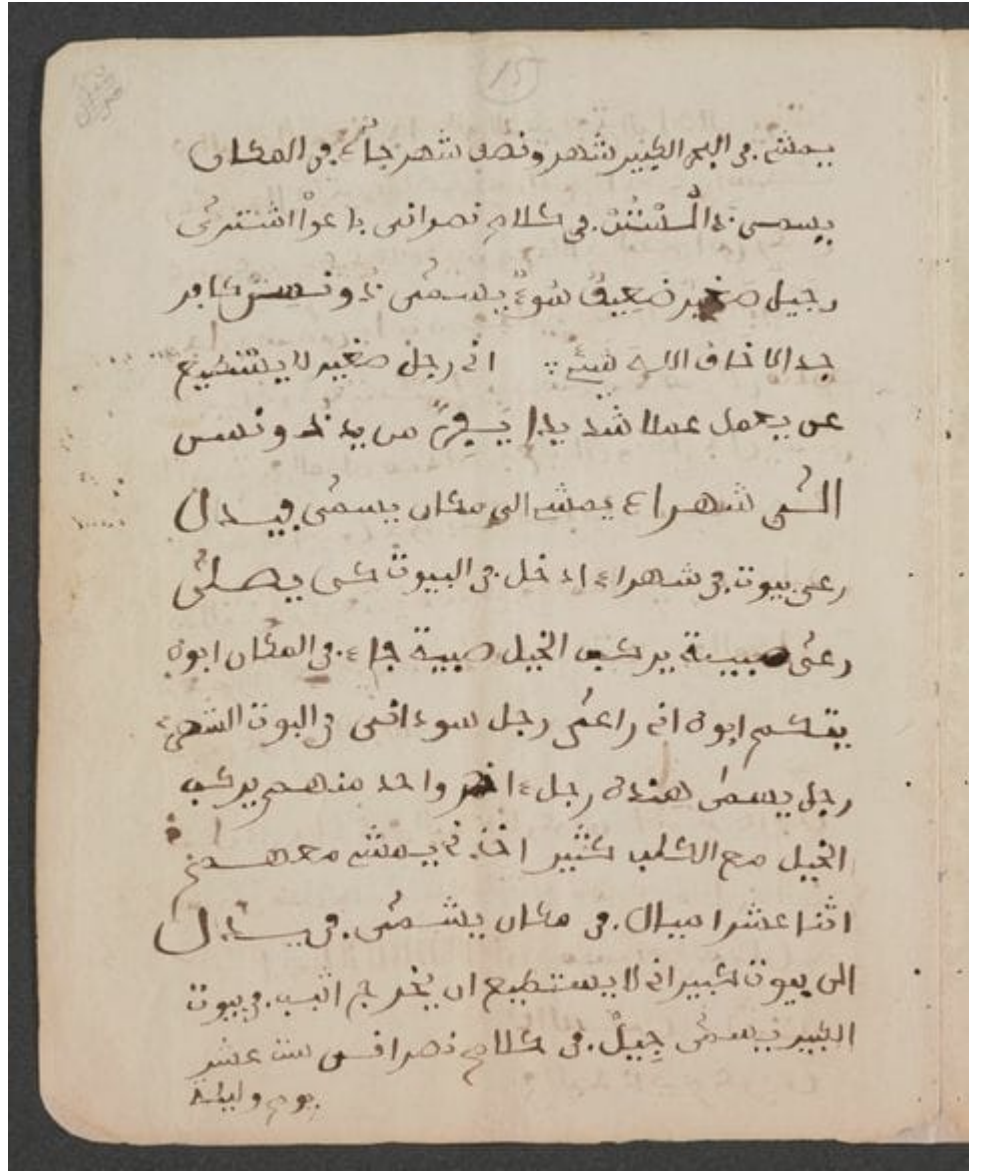 15
يمشي في البحر الكبير شهر ونصف شهر جاء في المكان
يسمى في كلام نصراني باعوا اشترى
رجيل صغير ضعيف سوء يسمى جونسن كافر
جدا لا خاف الله شيء اني رجل صغير لا يستطيع
عن يعمل عملا شديدا يفر من يد جونسن
الى شهرا يمشي الى مكان يسمى فيدل
رءى بيوت في شهرا ادخل في البيوت كى يصلى
رءى صبية يركب الخيل صبية جاء في المكان ابوه
يتكلم ابوه اني راءى رجل سودانى في البوت الشهر
رجل يسمى هنده رجل ءاخر واحد منهم يركب
الخيل مع الكلب كثير اخذني يمشي معهم
اثنا عشرا ميال في مكان يسمى فيدل
الى بيوت كبير اني لا يستطيع ان يخرج في بيوت
الكبير يسمى جيل في كلام نصراني ست عشر
يوم وليلة